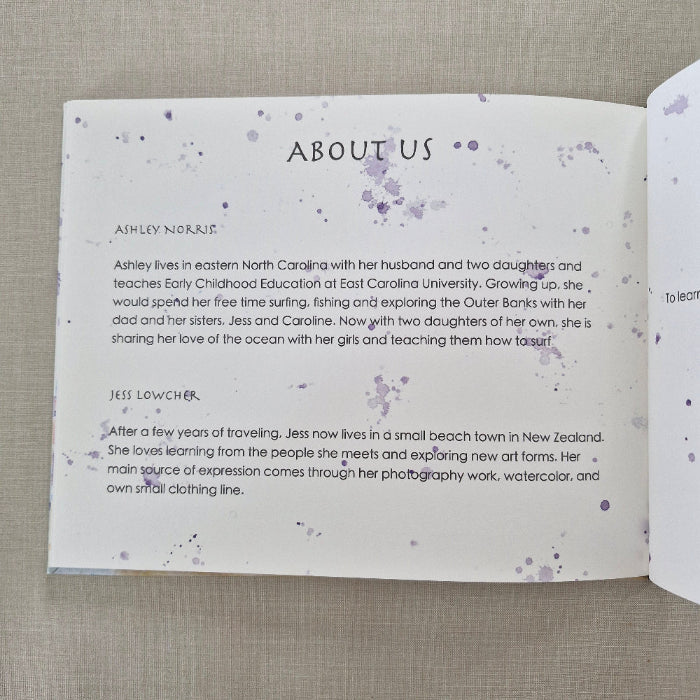 ABOUT US
ASHLEY NORRIS
Ashley lives in eastern North Carolina with her husband and two daughters and
teaches Early Childhood Education at East Carolina University. Growing up, she
would spend her free time surfing, fishing and exploring the Outer Banks with her
dad and her sisters, Jess and Caroline. Now with two daughters of her own, she is
sharing her love of the ocean with her girls and teaching them how to surf.
JESS LOWCHER
After a few years of traveling, Jess now lives in a small beach town in New Zealand.
She loves learning from the people she meets and exploring new art forms. Her
main source of expression comes through her photography work, watercolor, and
own small clothing line.
To learn